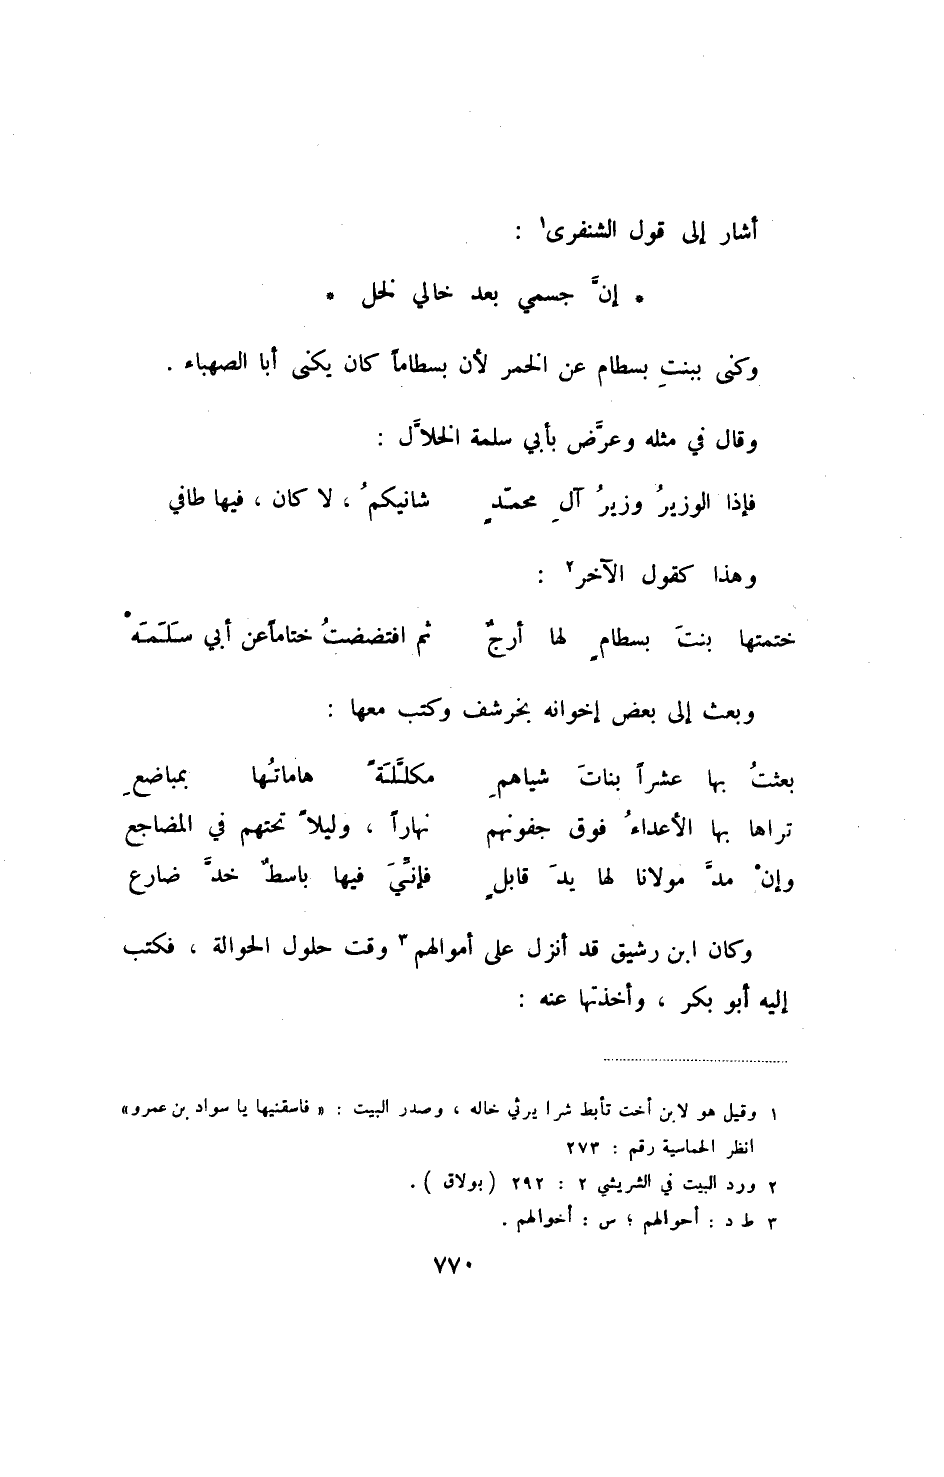 أشار إلى قول الشنفرى١ :
* إنَّ جسمي بعد خالي لخل *
وكنى ببنتِ بسطام عن الخمر لأن بسطاماً كان يكنى أبا الصهباء .
وقال في مثله وعرَّض بأبي سلمة الخلاَّل :
فإذا الوزيرُ وزيرُ آلِ محمّدٍ شانيكمُ ، لا كان ، فيها طافي
وهذا كقول الآخر٢ :
ختمتها بنتَ بسطامٍ لها أرجٌ ثم افتضضتُ ختاماً عن أبي سَلَمَهْ
وبعث إلى بعض إخوانه بخرشف وكتب معها :
بعثتُ بها عشراً بناتَ شياهمِ مكلَّلَةً هاماتُها بمباضعِ
تراها بها الأعداءُ فوق جفونهم نهاراً ، وليلاً تحتهم في المضاجع
وإنْ مدَّ مولانا لها يدَ قابلٍ فإنّيَ فيها باسطٌ خدَّ ضارع
وكان ابن رشيق قد أنزل على أموالهم٣ وقت حلول الحوالة ، فكتب
إليه أبو بكر ، وأخذتها عنه :
١ وقيل هو لابن أخت تأبط شرا يرثي خاله ، وصدر البيت : « فاسقنيها يا سواد بن عمرو »
انظر الحماسية رقم : ٢٧٣
٢ ورد البيت في الشريشي ٢ : ٢٩٢ ( بولاق ) .
٣ ط د : أحوالهم ؛ س : أخوالهم .
٧٧٠